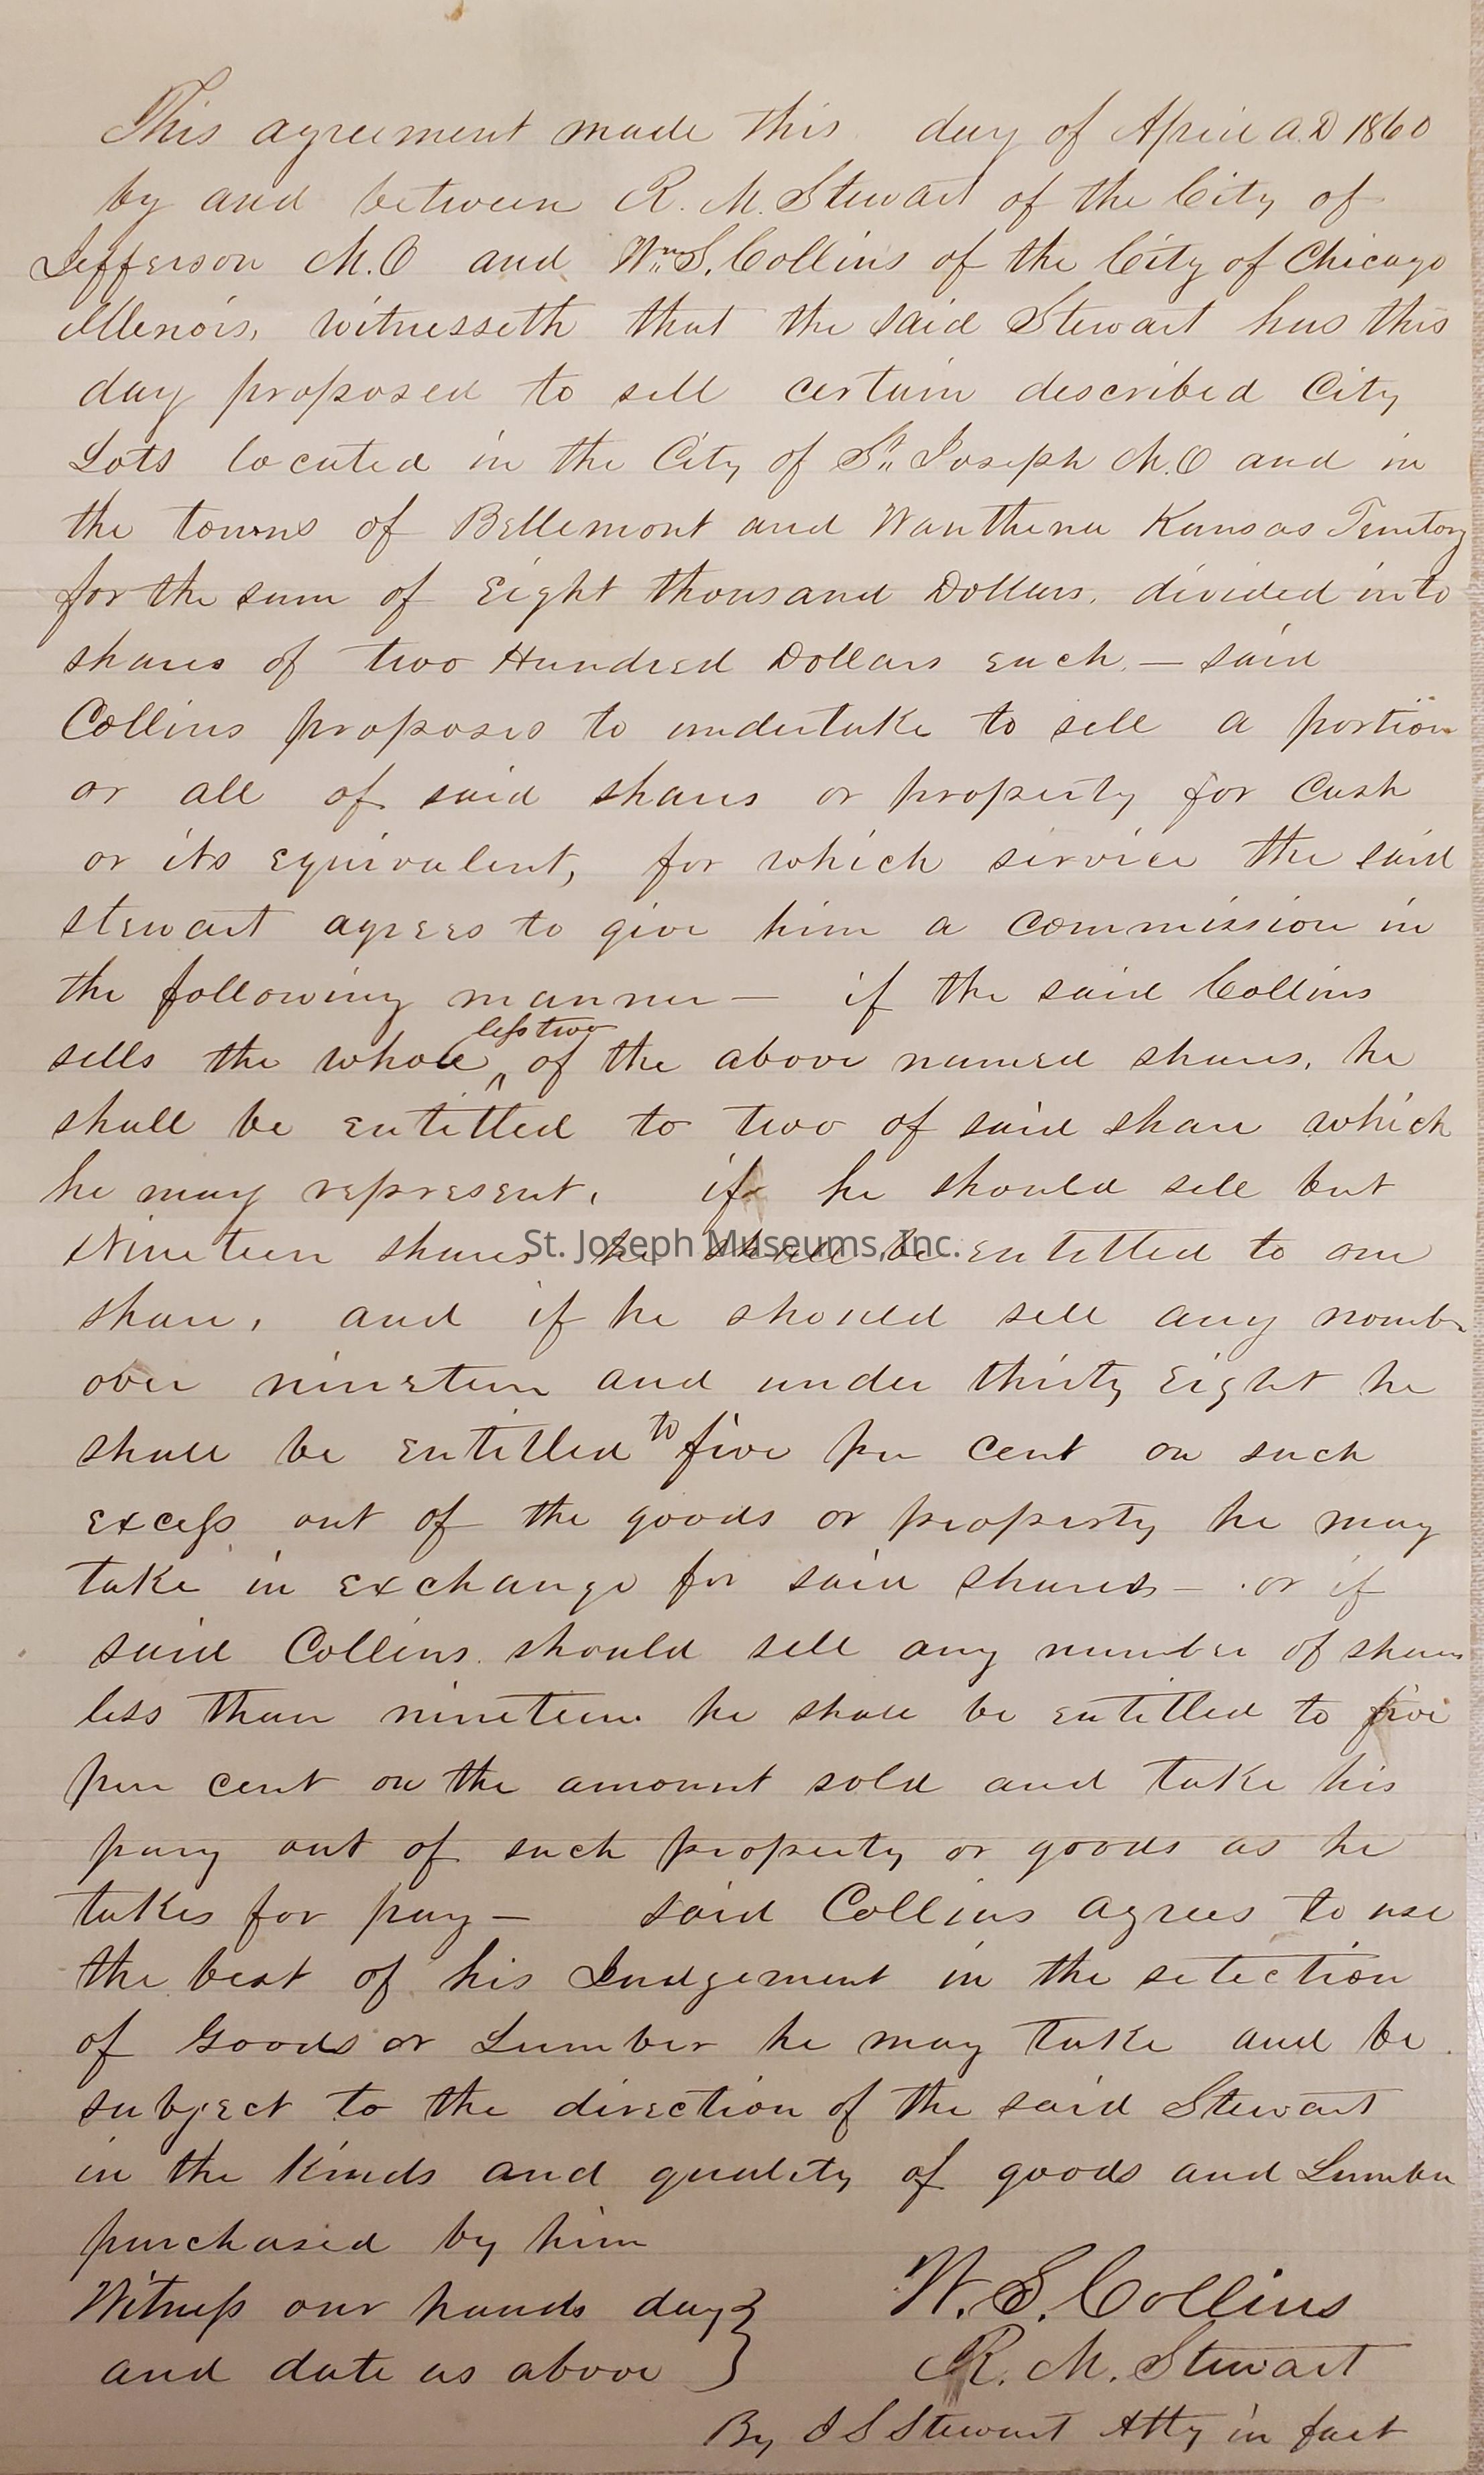 This agreement made this day of April A.D 1860
by and between R. M. Stewart of the City of
Jefferson M.O and Wm. S. Collins of the City of Chicago
Illenois, witnesseth that the said Stewart has this
day proposed to sell certain described City
Lots located in the City of St. Joseph M.O and in
the towns of Bellemont and Wauthena Kansas Territory
for the sum of Eight thousand Dollars, divided into
shares of two Hundred Dollars each. — said
Collins proposes to undertake to sell a portion
or all of said shares or property for Cash
or its equivalent, for which service the said
Stewart agrees to give him a commission in
the following manner — if the said Collins
less two
sells the whole ^ of the above named shares, he
shall be entitled to two of said share which
he may represent, if he should sell but
Nineteen shares he shall be entitled to one
St. Joseph Museums, Inc.
share, and if he should sell any numbr
over nineteen and under thirty Eight he
shall be entitled to five per cent on such
excess out of the goods or property he may
take in exchange for said shares — or if
said Collins should sell any number of shares
less than nineteen he shall be entitled to five
per cent on the amount sold and take his
pay out of such property or goods as he
takes for pay — said Collins agrees to use
the best of his Judgement in the selection
of Goods or Lumber he may take and be
subject to the direction of the said Stewart
in the kinds and quality of goods and Lumber
purchased by him
Witness our hands day } W. S. Collins
and date as above } R. M. Stewart
By J S Stewart Atty in fact